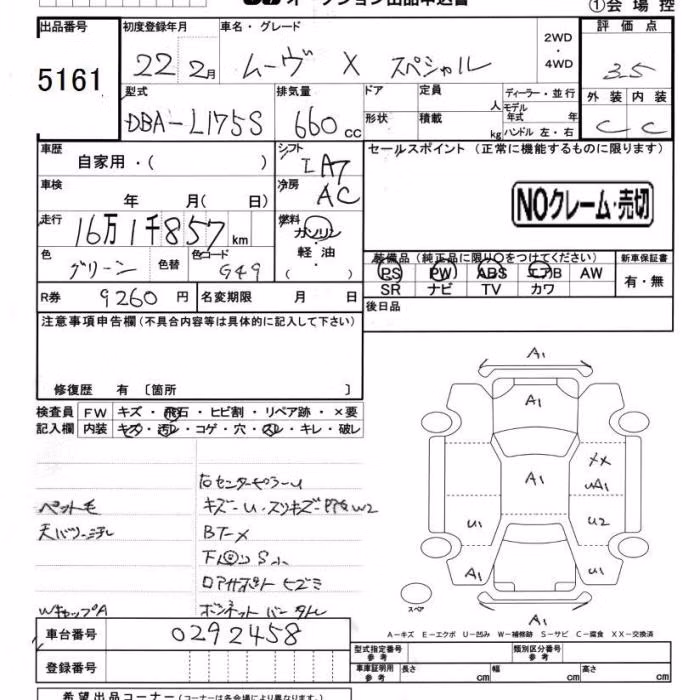 オークション出品申込書
①会場控
出品番号 5161
初度登録年月 22 2月
車名・グレード ムーヴ X スペシャル
2WD・4WD
評価点 3.5
外装 内装
C C
型式 DBA-L175S
排気量 660cc
ドア 定員 人
形状 積載 kg
ディーラー・並行
モデル年式 年
ハンドル 左・右
車歴 自家用・( )
シフト IA7
セールスポイント (正常に機能するものに限ります)
車検 年 月( 日)
冷房 AC
NOクレーム・売切
走行 16万1千857km
燃料 ガソリン・軽油・( )
色 グリーン 色替 色コード G49
装備品 (純正品に限り○をつけてください)
新車保証書
PS PW ABS エアB AW
有・無
SR ナビ TV カワ
R券 9260円 名変期限 月 日
後日品
注意事項申告欄 (不具合内容等は具体的に記入して下さい)
修復歴 有 〔箇所 〕
検査員 FW キズ・飛石・ヒビ割・リペア跡・×要
記入欄 内装 キズ・汚レ・コゲ・穴・スレ・キレ・破レ
右センターピラーU
ペット毛 キズ-U・スリキズ-
W2
BT-X
下回りS小
ロアサポートヒズミ
WキャップA
A1
A1
A1
XX
UA1
U1
U2
A1
U1
A1
スペア
A-キズ E-エクボ U-凹み W-補修跡 S-サビ C-腐食 XX-交換済
車台番号 0292458
型式指定番号 参考 類別区分番号 参考
登録番号
車庫証明用 参考 長さ cm 幅 cm 高さ cm
希望出品コーナー (コーナーは各会場により異なります。)